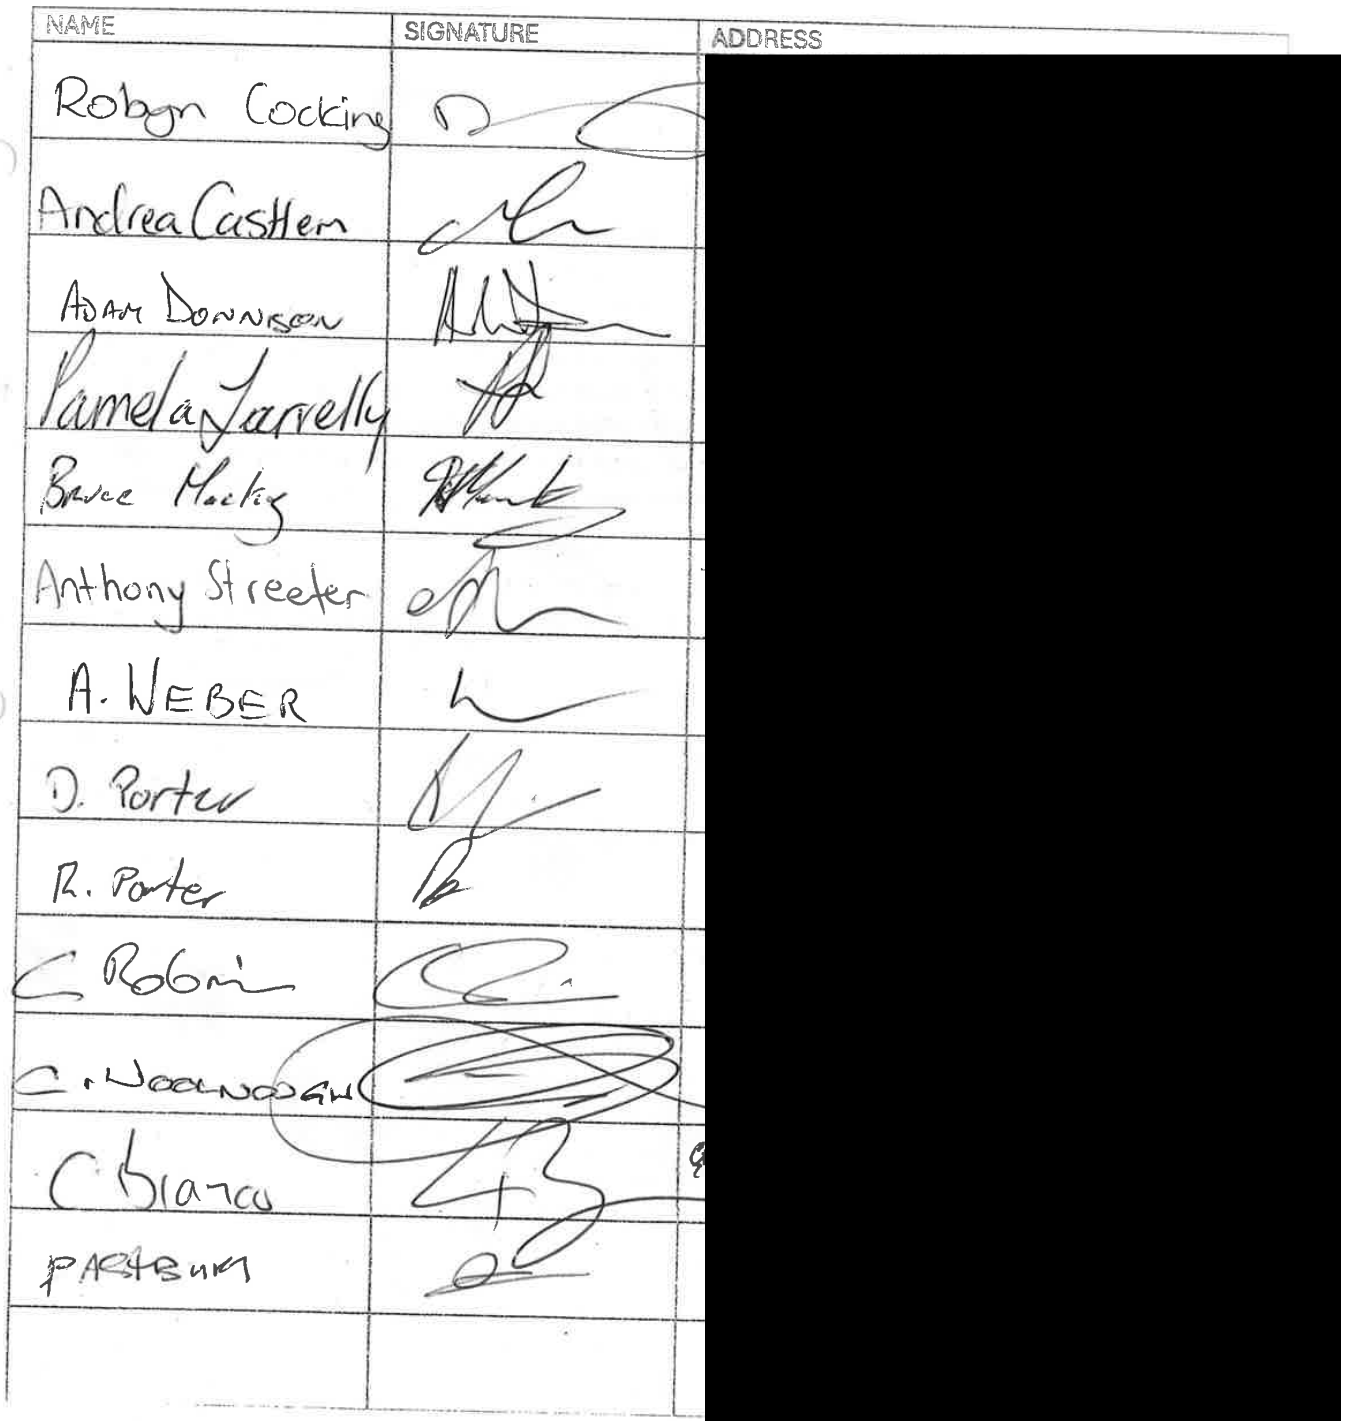 NAME SIGNATURE ADDRESS
Robyn Cocking
Andrea Casttem
ADAM DONNISON
Pamela Farrelly
Bruce Mackey
Anthony Streeter
A. WEBER
D. Porter
R. Porter
C
C. WOOLNOUGH
C Bianco